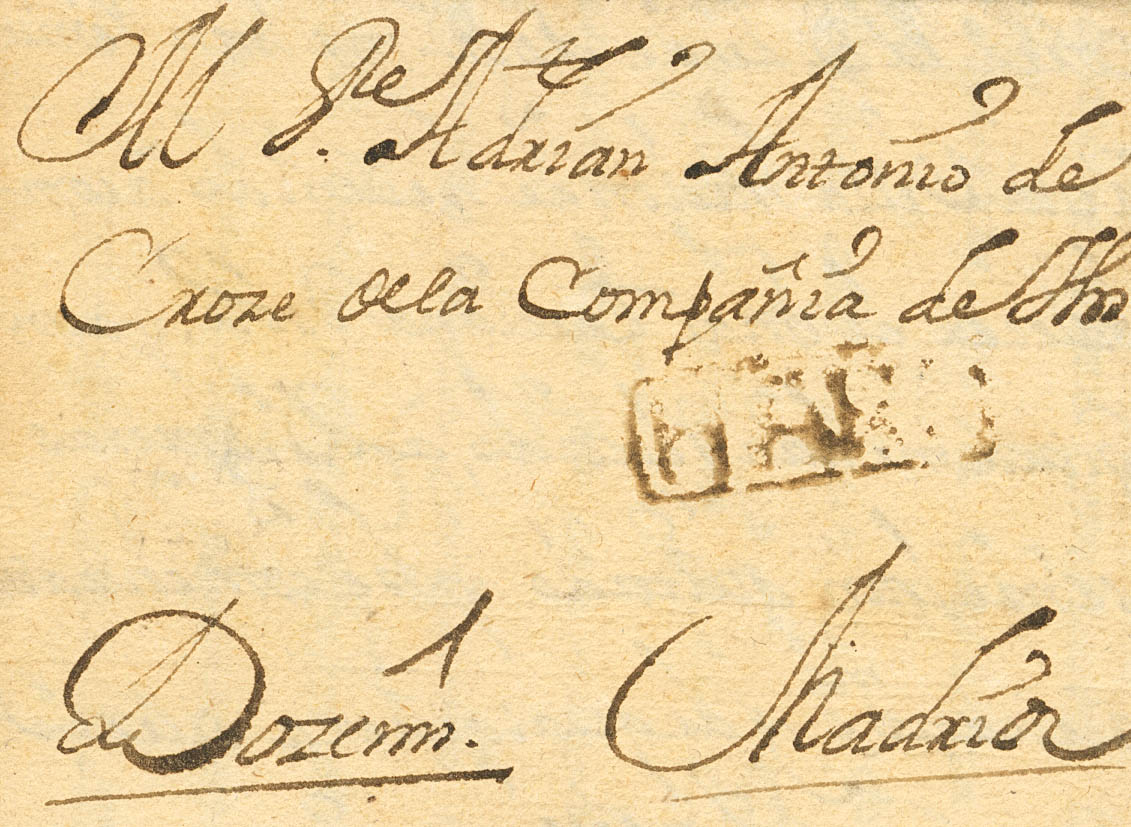 M P.e Adrian Antonio de
Croze de la Compañia de Jhs
Dozenm. Madrid